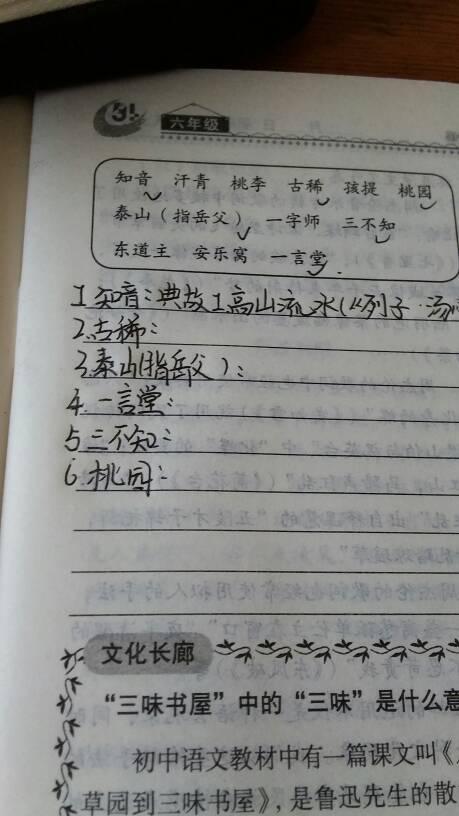 六年级
知音 汗青 桃李 古稀 孩提 桃园
泰山（指岳父） 一字师 三不知
东道主 安乐窝 一言堂
1.知音：典故1高山流水(《列子·汤
2.古稀：
3.泰山(指岳父)：
4.一言堂：
5.三不知：
6.桃园：
文化长廊
“三味书屋”中的“三味”是什么意
初中语文教材中有一篇课文叫《
草园到三味书屋》，是鲁迅先生的散